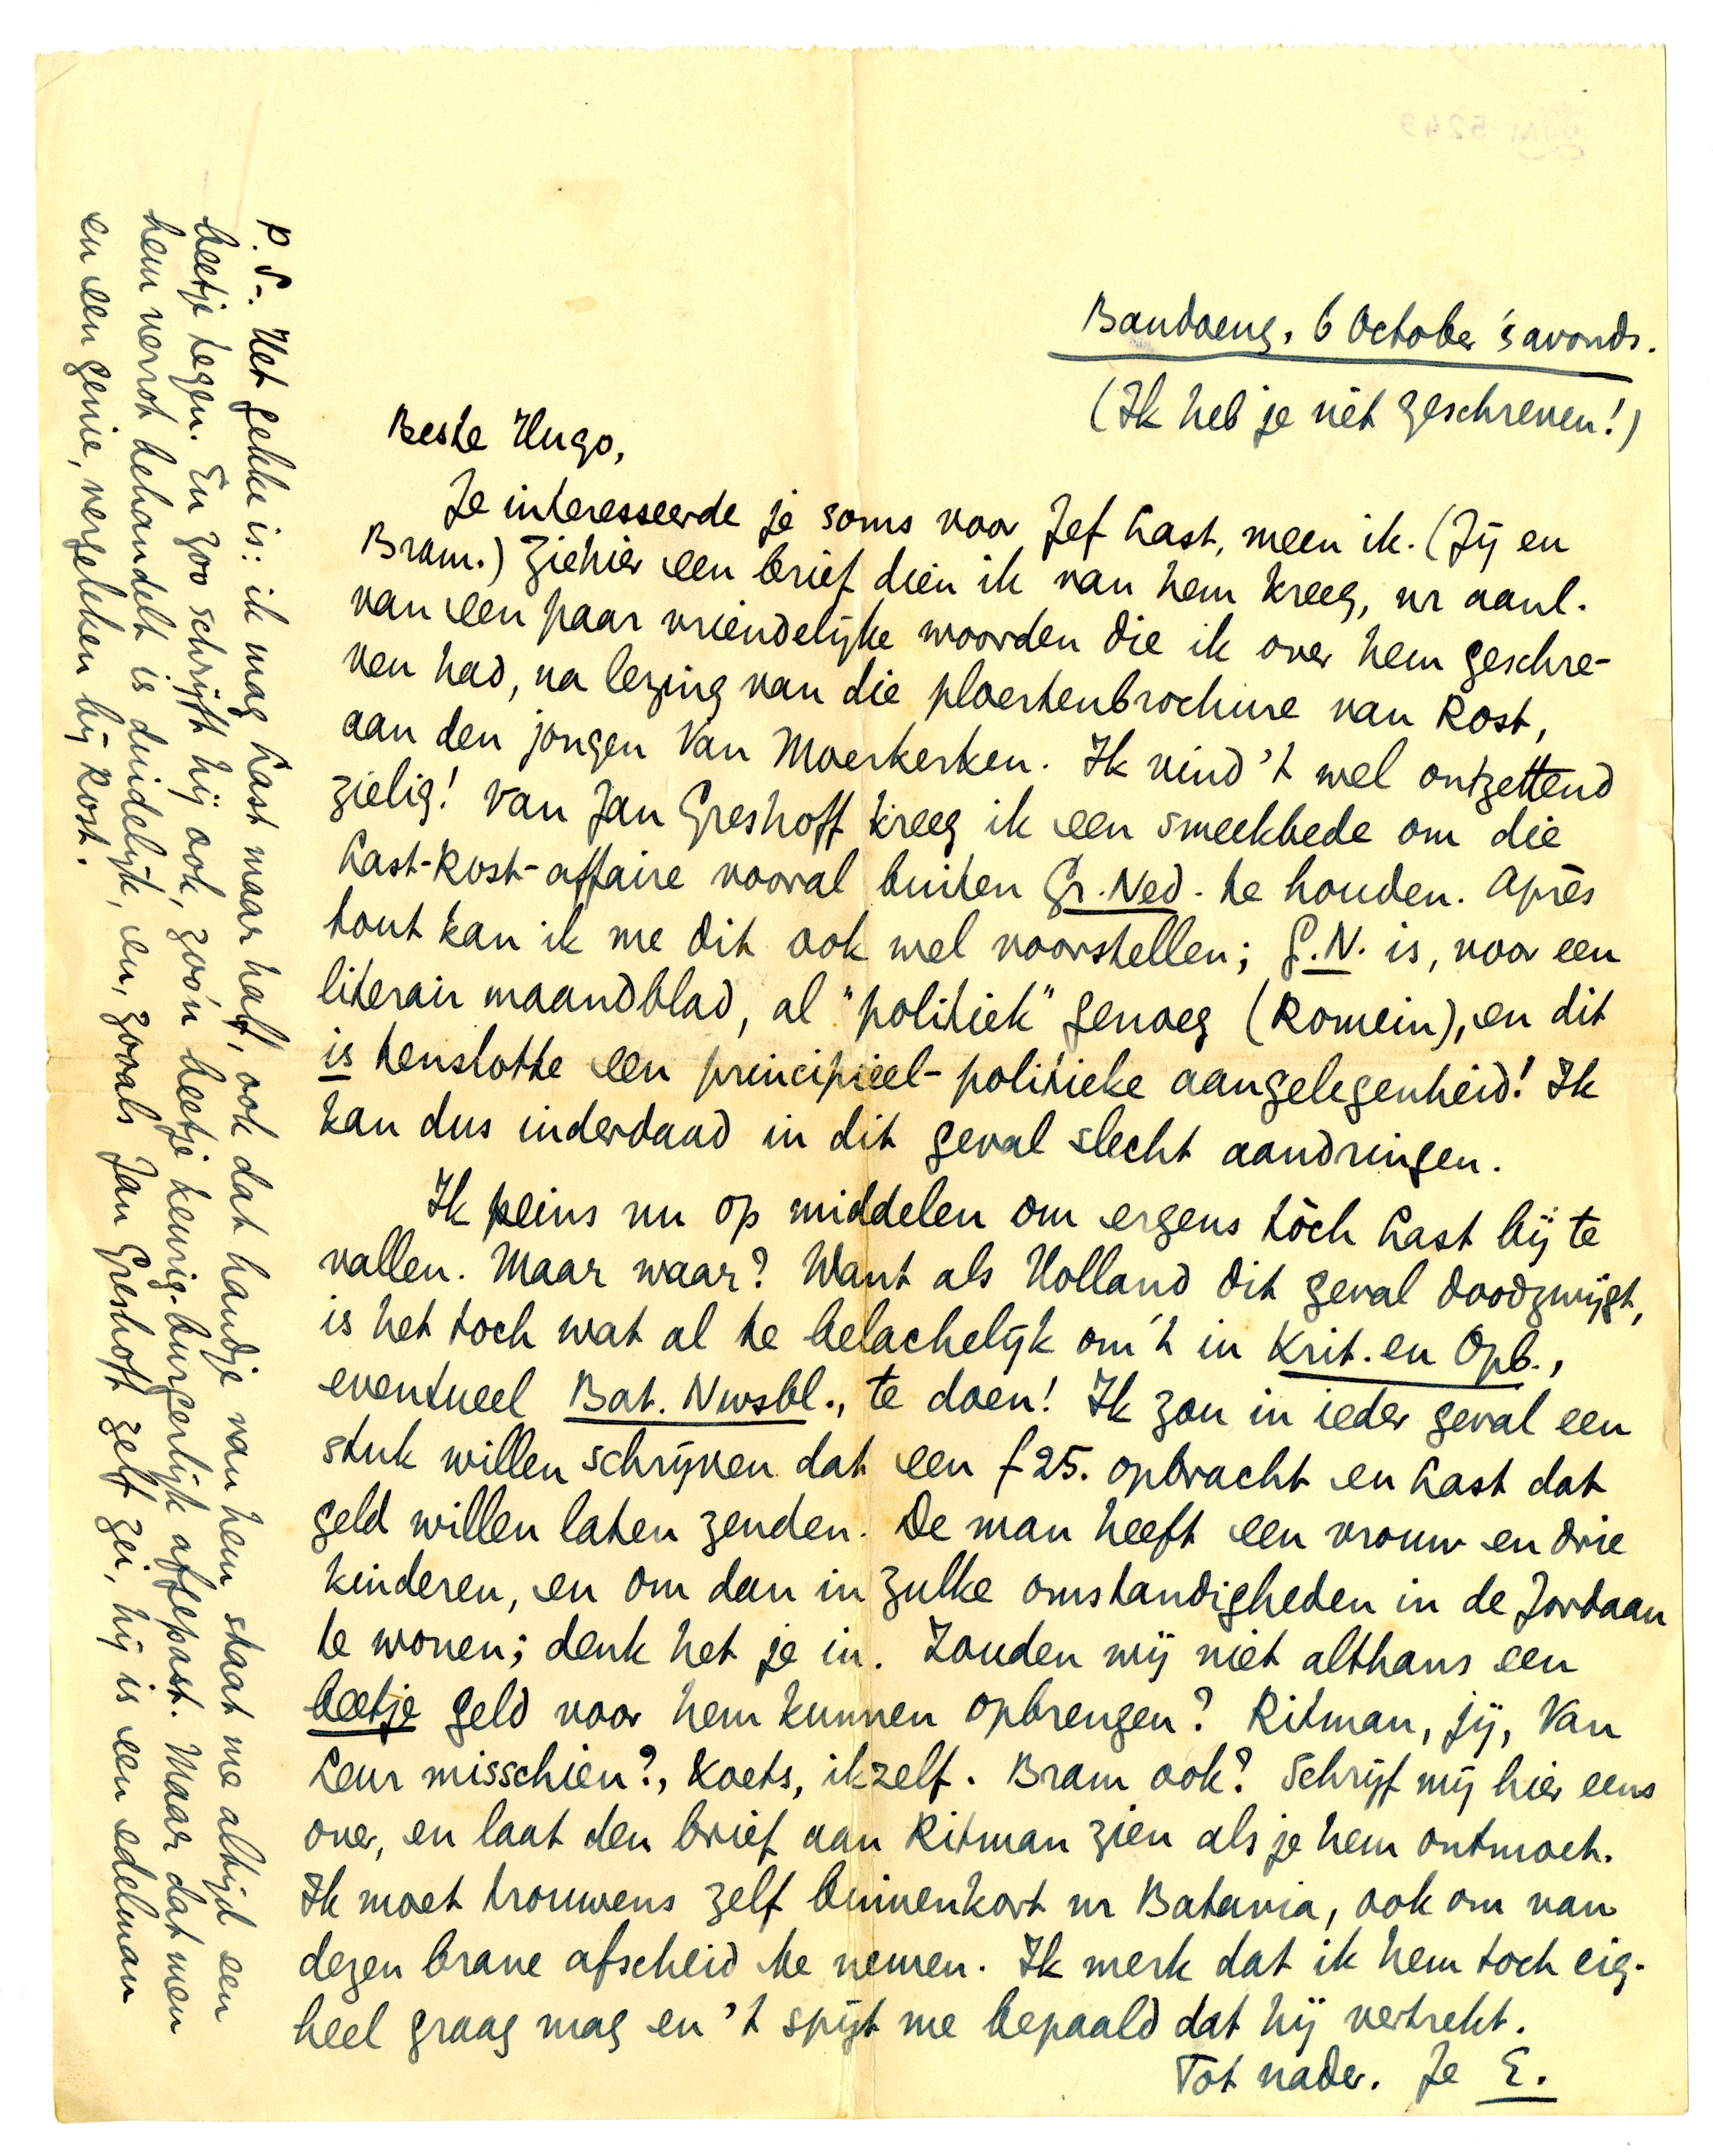 Bandoeng, 6 October 's avonds.
(Ik heb je niet geschreven!)
Beste Hugo,
Je interesseerde je soms voor Jef Last, meen ik. (Jij en
Bram.) Ziehier een brief dien ik van hem kreeg, nr aanl.
van een paar vriendelijke woorden die ik over hem geschre-
ven had, na lezing van die ploertenbrochure van Rost,
aan den jongen Van Moerkerken. Ik vind 't wel ontzettend
zielig! Van Jan Greshoff kreeg ik een smeekbede om die
Last-Rost-affaire vooral buiten Gr. Ned. te houden. Après
tout kan ik me dit ook wel voorstellen; G.N. is, voor een
literair maandblad, al "politiek" genoeg (Romein), en dit
is tenslotte een principieel-politieke aangelegenheid! Ik
kan dus inderdaad in dit geval slecht aandringen.
Ik peins nu op middelen om ergens tòch Last bij te
vallen. Maar waar? Want als Holland dit geval doodzwijgt,
is het toch wat al te belachelijk om 't in Krit. en Opb.,
eventueel Bat. Nwsbl., te doen! Ik zou in ieder geval een
stuk willen schrijven dat een f 25. opbracht en Last dat
geld willen laten zenden. De man heeft een vrouw en drie
kinderen, en om dan in zulke omstandigheden in de Jordaan
te wonen; denk het je in. Zouden wij niet althans een
beetje geld voor hem kunnen opbrengen? Ritman, jij, Van
Leur misschien?, Koets, ikzelf. Bram ook? Schrijf mij hier eens
over, en laat den brief aan Ritman zien als je hem ontmoet.
Ik moet trouwens zelf binnenkort nr Batavia, ook om van
dezen brave afscheid te nemen. Ik merk dat ik hem toch eig.
heel graag mag en 't spijt me bepaald dat hij vertrekt.
Tot nader. Je E.
P.S. Het gekke is: ik mag Last maar half, ook dat handje van hem staat me altijd een
beetje tegen. En zoo schrijft hij ook, zoo'n beetje keurig-burgerlijk afgepast. Maar dat men
hem verrot behandelt is duidelijk, en, zooals Jan Greshoff zelf zei, hij is een edelman
en een genie, vergeleken bij Rost.